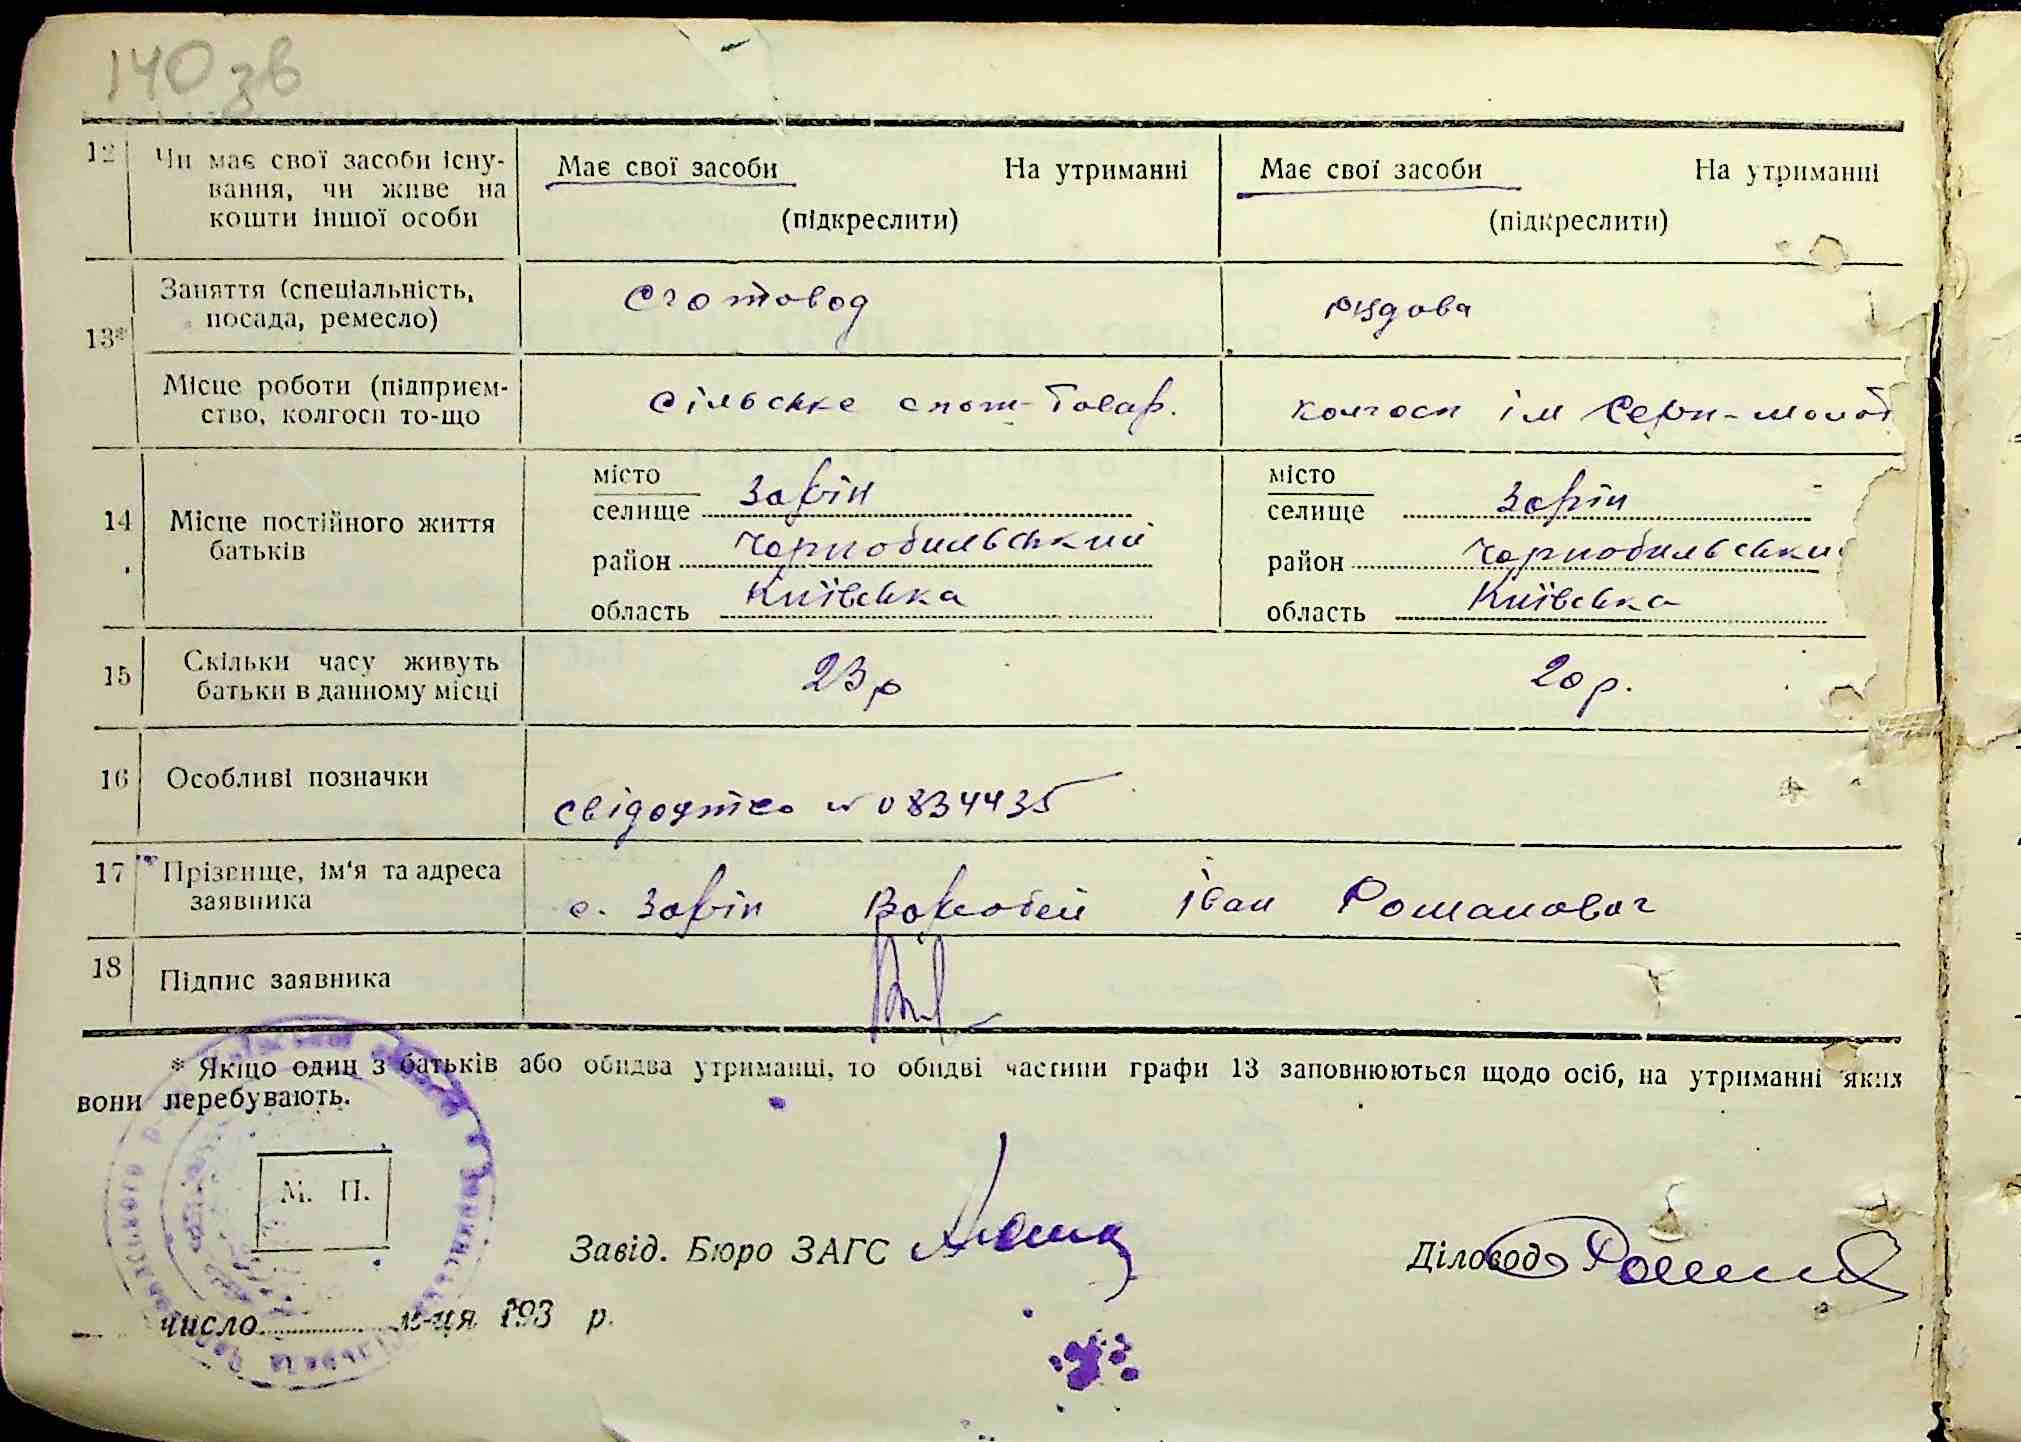 140 зв
12 Чи має свої засоби існу- Має свої засоби На утриманні Має свої засоби На утриманні
вання, чи живе на
кошти іншої особи (підкреслити) (підкреслити)
13* Заняття (спеціальність, рядова
посада, ремесло)
Місце роботи (підприєм- Сільське спож-товар. колгосп ім Серп-молот
ство, колгосп то-що
14 Місце постійного життя батьків
місто Зорін місто Зорін
селище селище
район Чорнобильський район Чорнобильський
область Київська область Київська
15 Скільки часу живуть 23 р 20 р.
батьки в данному місці
16 Особливі позначки
свідоцтво № 0834435
17 Прізвище, ім'я та адреса
заявника с. Зорін Воробей Іван Романович
18 Підпис заявника
* Якщо один з батьків або обидва утриманці, то обидві частини графи 13 заповнюються щодо осіб, на утриманні яких
вони перебувають.
М. П.
Завід. Бюро ЗАГС Діловод
число м-ця 193 р.